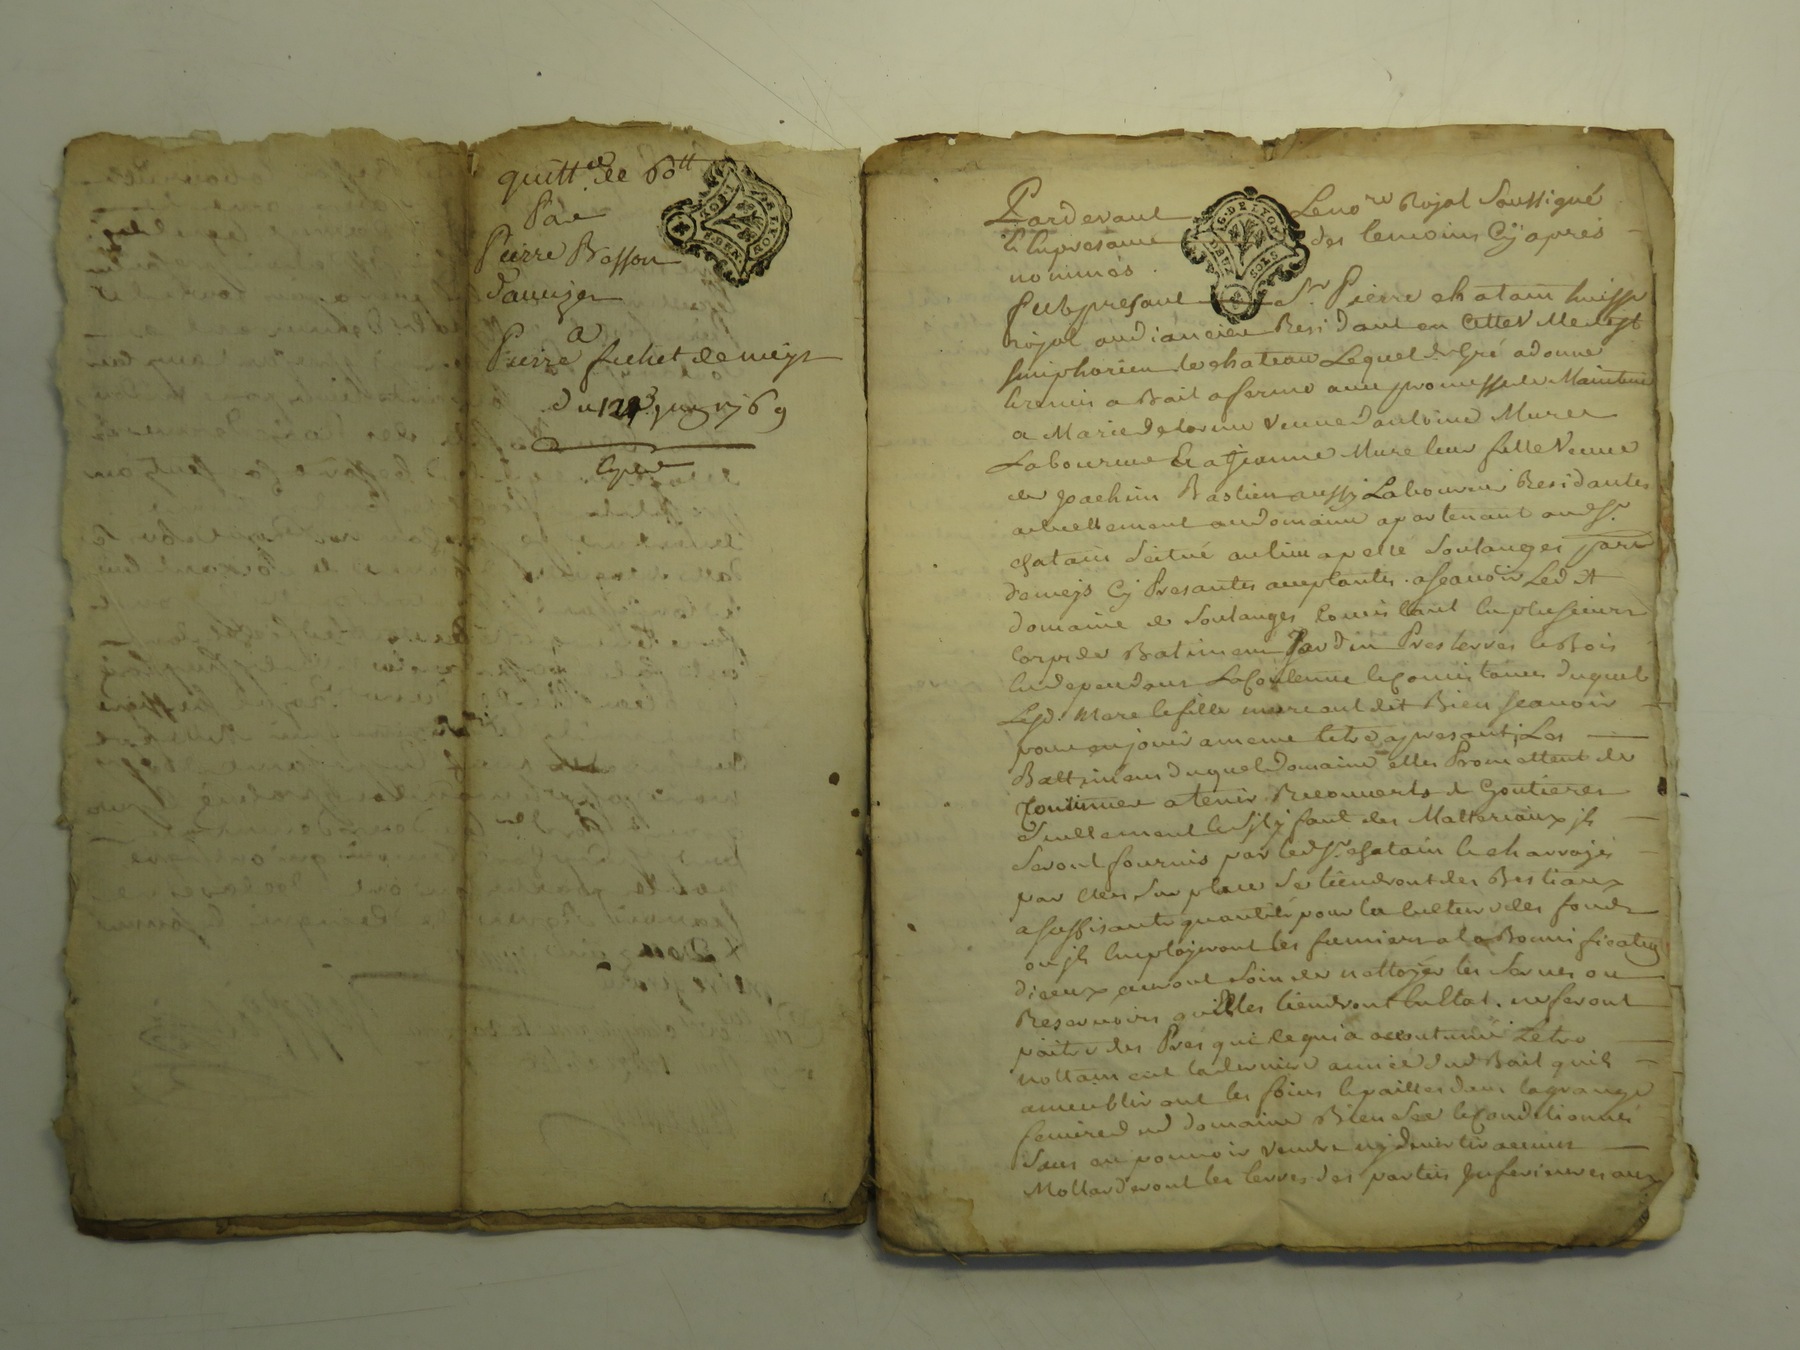 quitt.ce de 60 tt
Par
Pierre Basson
d'auuize
a
Pierre fuchet de meys
du 1769
G. DE LYON
DEUX SOLS
G. DE LYON
DEUX SOLS
Pardevant Le nore Royal Soussigné
et En presance des temoins Cÿ aprés
nommés
fut present Sr. Pierre chatain huissr
royal audiancier Residant en Cette ville de st
simphorien le chateau Lequel de Gré a donné
et remis a Bail a ferme avec promesse de Maintenir
a Marie delorme veuve d'antoine Mure
Laboureur Et a Jeanne Mure leur fille Veuve
de Joachim Bastien aussÿ Laboureur Residantes
actuellement au domaine apartenant aud. sr.
chatain Scitué au lieu apellé Soulanges parr
de meys Cÿ Presantes acceptantes. a Scavoir Ledit
domaine de Soulanges Consistant En plusieurs
Corps de Batiment Jardin Prés terres et Bois
En dependans La Contenue et Consistance duquel
Lesd. Mere et fille ont dit Bien Scavoir
pour en jouir a meme titre a presant, Les
Battimens duquel domaine elles Promettent de
Continuer a tenir Recouverts de Goutieres
Seullement Et s'il ÿ faut des Matteriaux ils
Seront fournis par led. sr. chatain et charroyés
par elles Sur place Se tiendront des Bestiaux
a Suffisante quantité pour la Culture des fonds
ou ils Employeront les fumiers a la Bonnification
d'iceux auront Soin de nettoyer les Serves ou
Reservoirs qu'Elles tiendront En Etat. ne feront
paitre des Prés que ce qui a accoutumé L'etre
nottament la derniere année dud Bail qu'ils
ameubliront les foins et pailles dans la grange
feniere dud domaine Bien Sec et Conditionnés
Sans en pouvoir vendre nÿ divertir aucuns
Mottarderont les terres des parties Inferieures aux